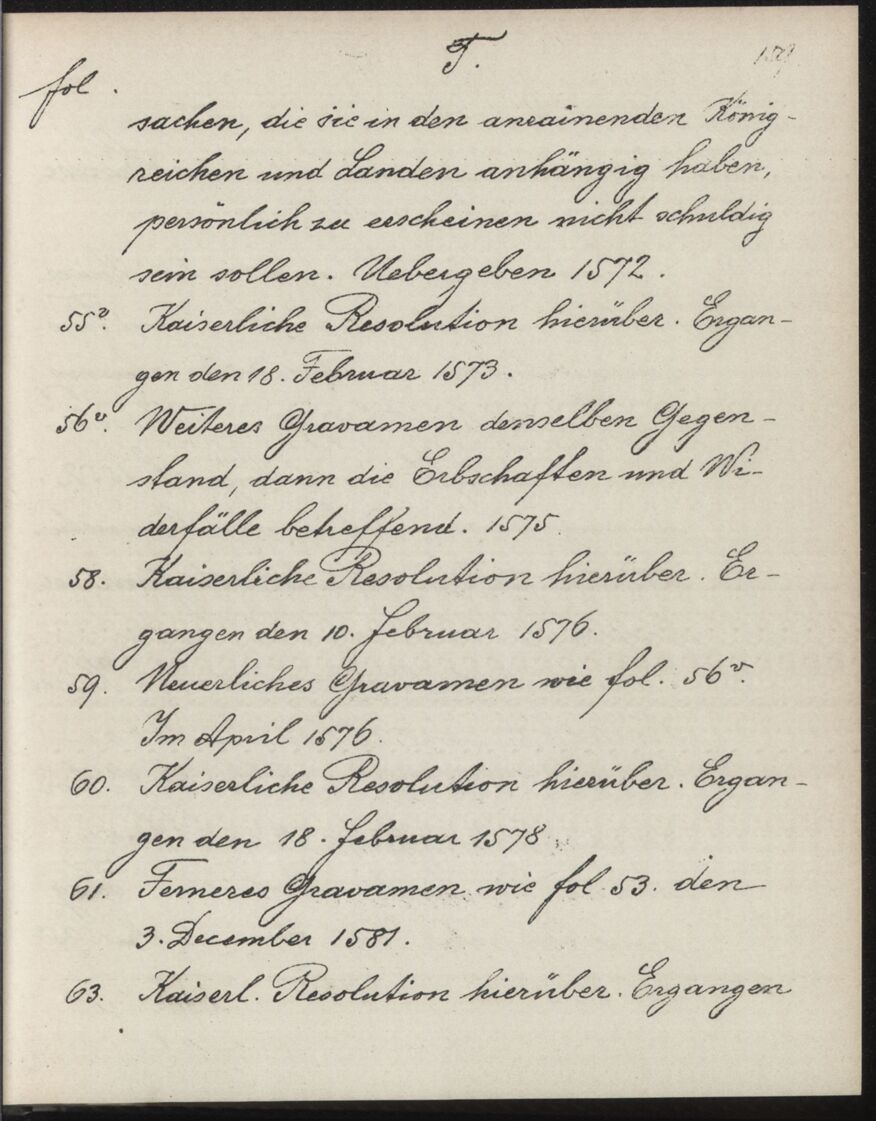 T.
fol.
sachen, die sie in den anrainenden König-
reichen und Landen anhängig haben,
persönlich zu erscheinen nicht schuldig
sein sollen. Uebergeben 1572.
55v. Kaiserliche Resolution hierüber. Ergan-
gen den 18. Februar 1573.
56v. Weiteres Gravamen denselben Gegen-
stand, dann die Erbschaften und Wi-
derfälle betreffend. 1575
58. Kaiserliche Resolution hierüber. Er-
gangen den 10. Februar 1576.
59. Neuerliches Gravamen wie fol. 56v.
Im April 1576.
60. Kaiserliche Resolution hierüber. Ergan-
gen den 18. Februar 1578
61. Ferneres Gravamen wie fol. 53. den
3. December 1581.
63. Kaiserl. Resolution hierüber. Ergangen